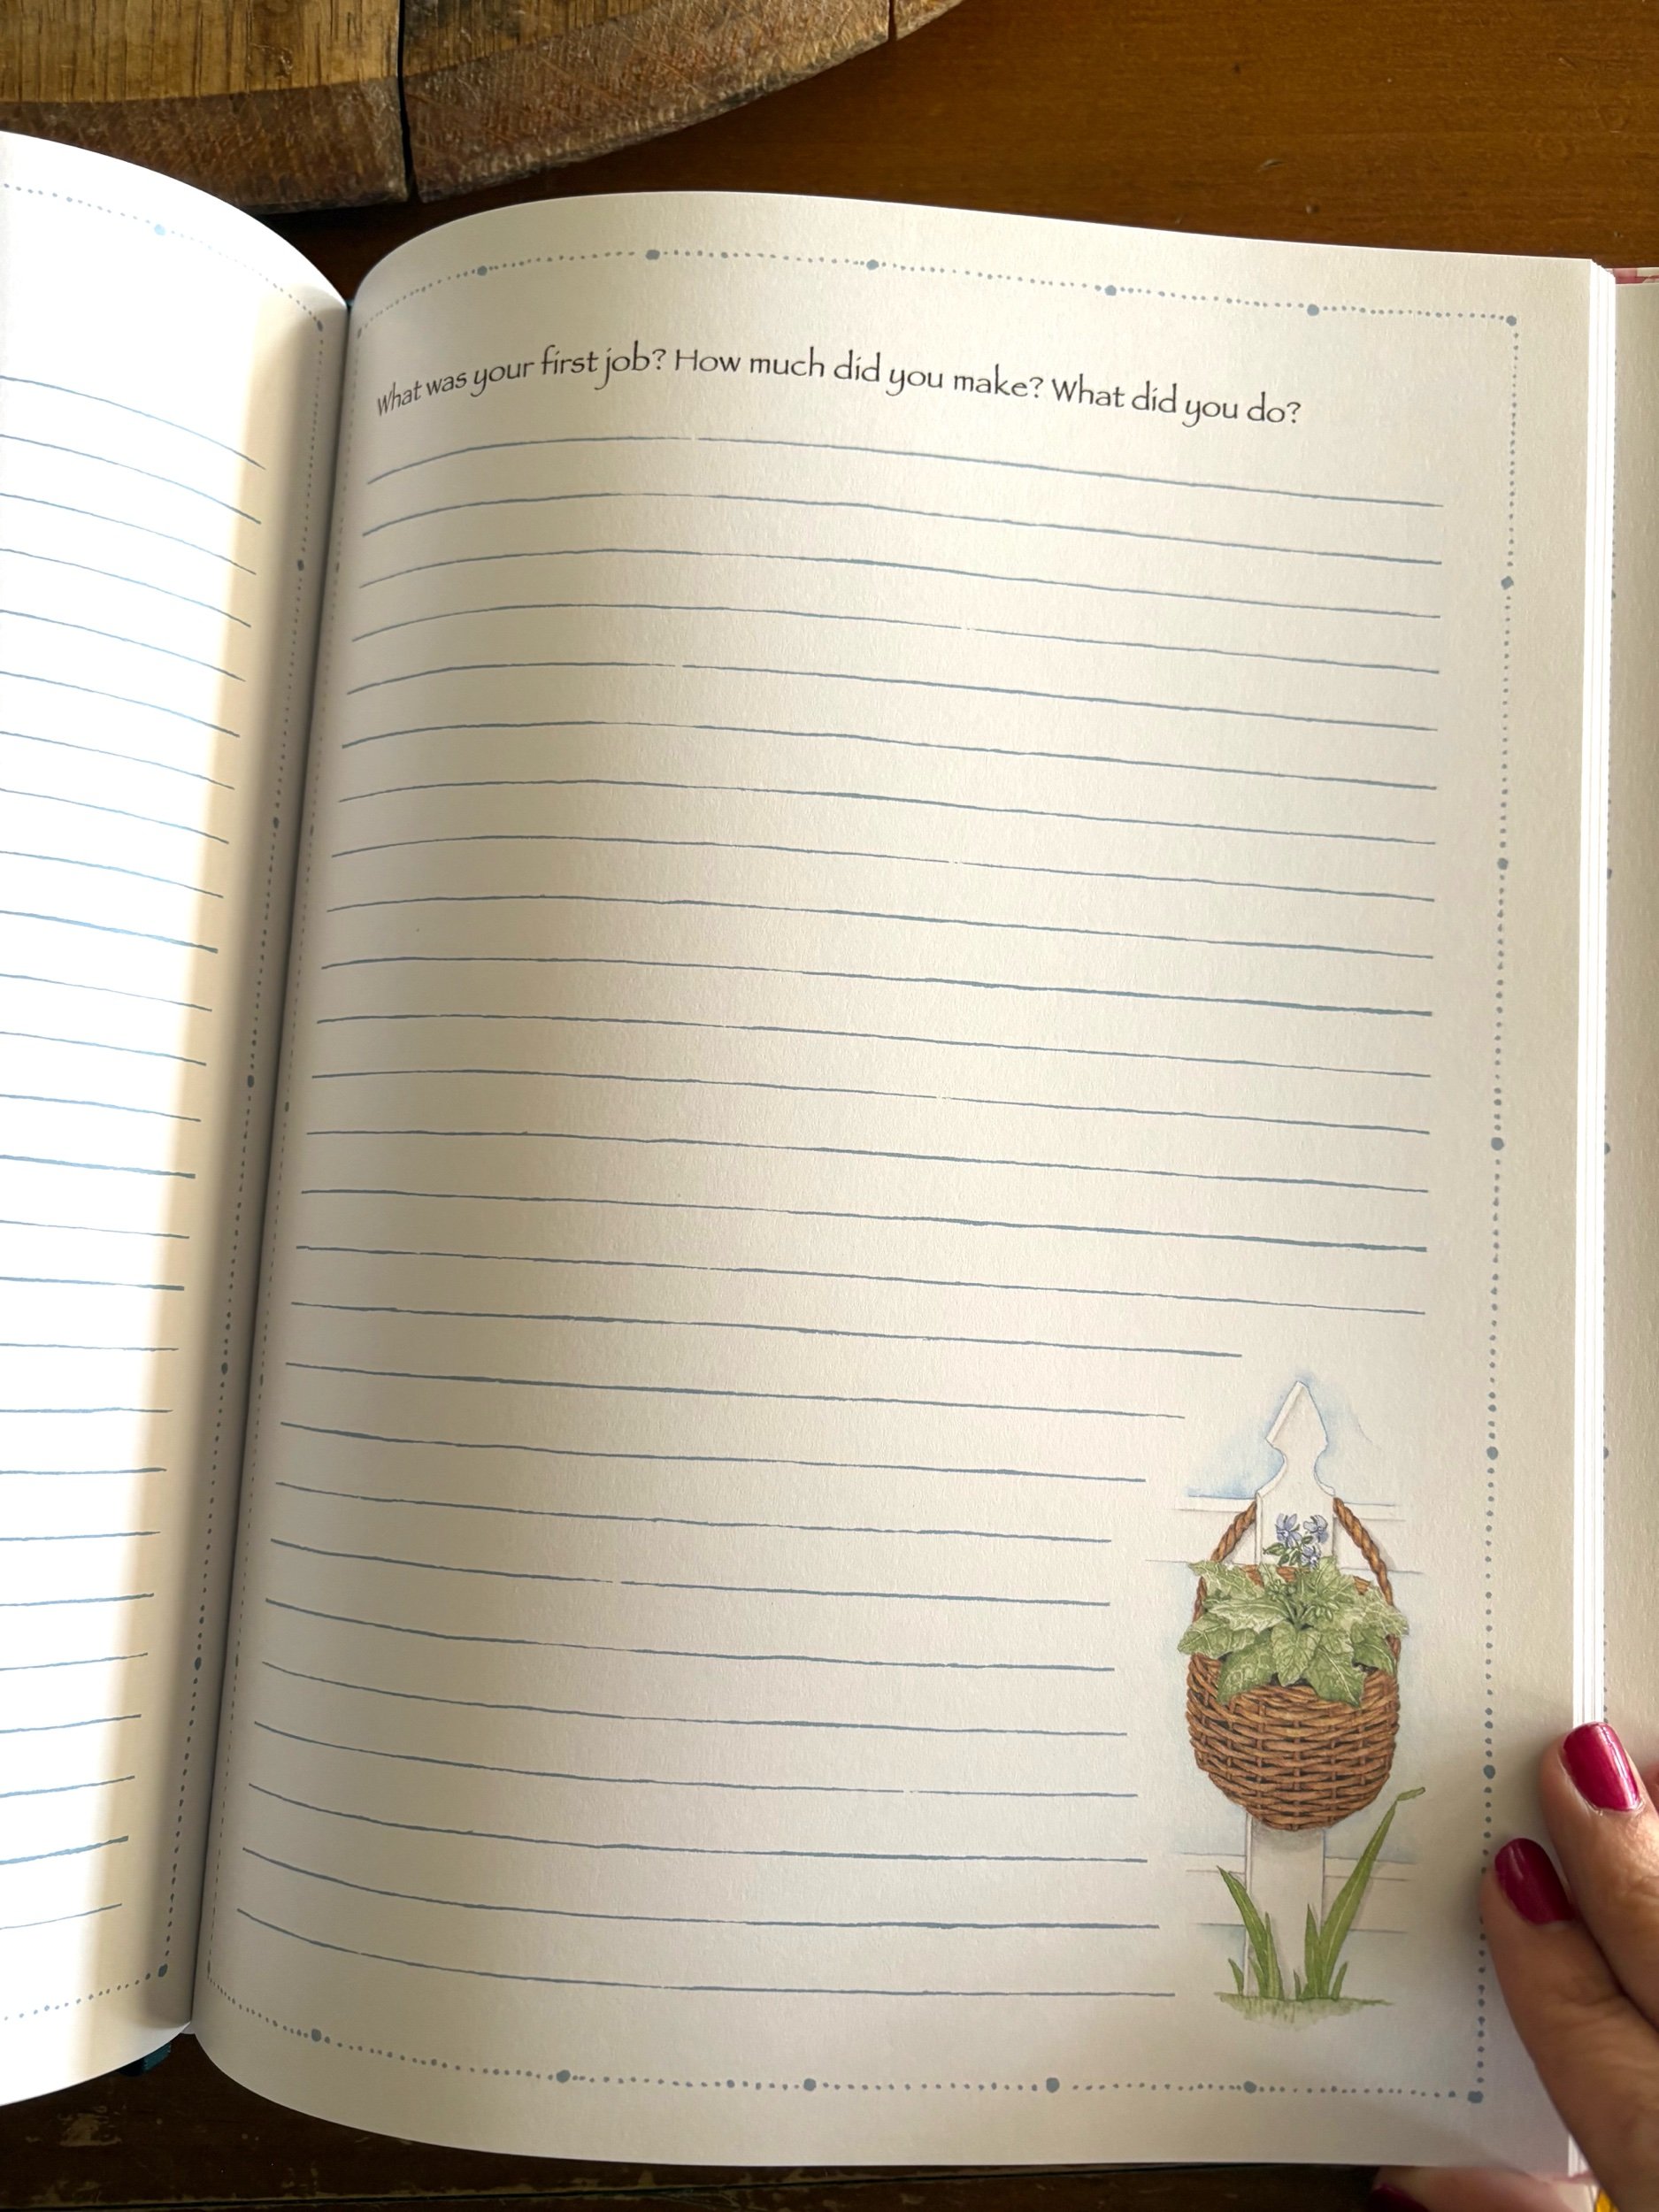 What was your first job? How much did you make? What did you do?